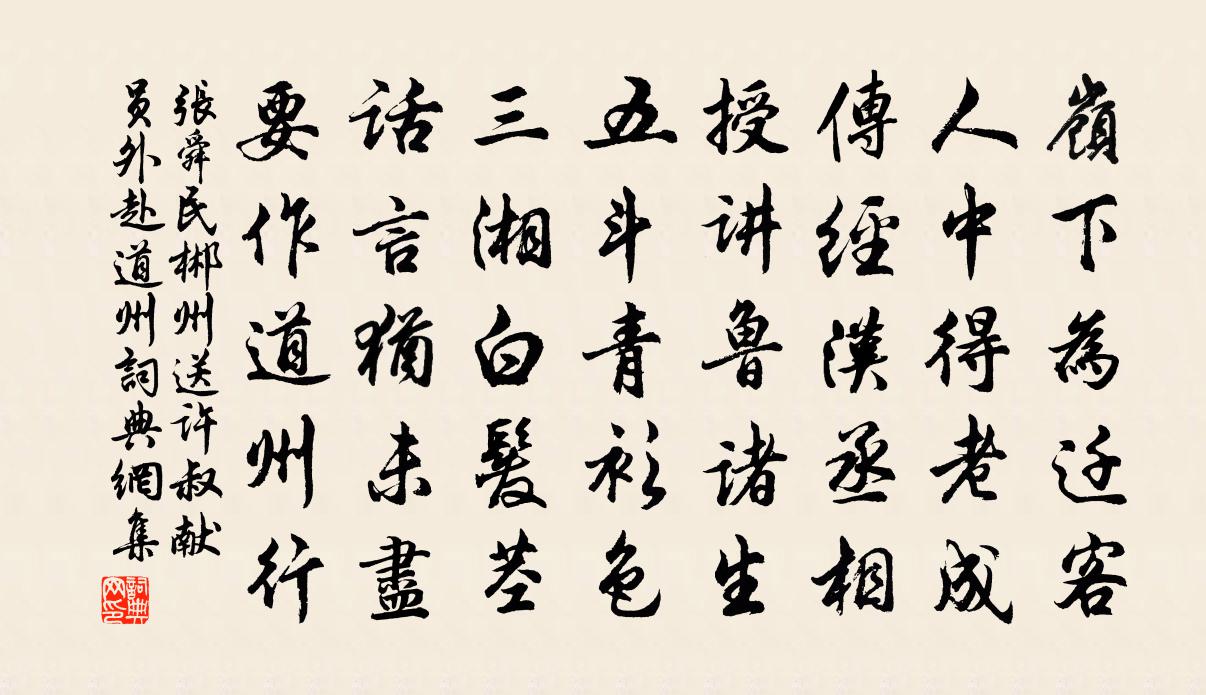 嶺下為迁客
人中得老成
傳經漢丞相
授讲鲁诸生
五斗青衫色
三湘白髮茎
话言猶未盡
要作道州行
張舜民郴州送许叔献
员外赴道州詞典網集
詞典
网印